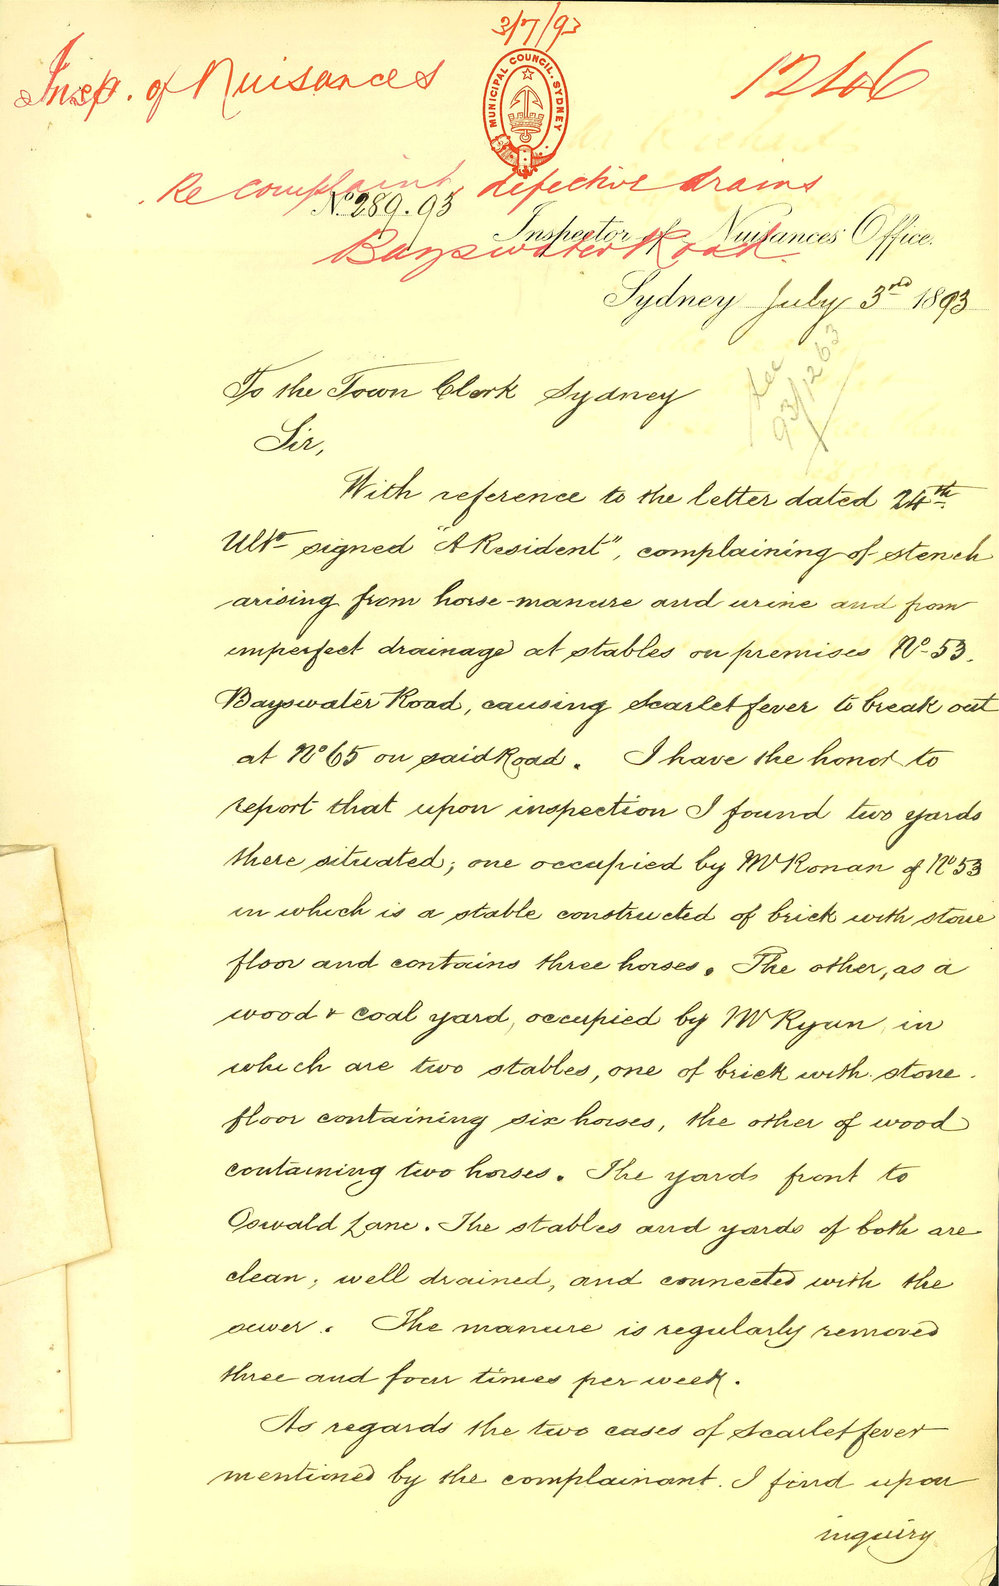 3/7/93
Insp. of Nuisances
MUNICIPAL COUNCIL. SYDNEY
1246
Re complaint, defective drains
No. 289.93
Inspector of Nuisances' Office.
Bayswater Road.
Sydney July 3rd 1893
To the Town Clerk Sydney
Sir,
With reference to the letter dated 24th
Ulto signed "A Resident", complaining of stench
arising from horse-manure and urine and from
imperfect drainage at stables on premises No 53.
Bayswater Road, causing Scarlet fever to break out
at No 65 on said Road. I have the honor to
report that upon inspection I found two yards
there situated; one occupied by Mr Ronan of No 53
in which is a stable constructed of brick with stone
floor and contains three horses. The other, as a
wood & coal yard, occupied by Mr Ryan, in
which are two stables, one of brick with stone
floor containing six horses, the other of wood
containing two horses. The yards front to
Oswald Lane. The stables and yards of both are
clean, well drained, and connected with the
sewer. The manure is regularly removed
three and four times per week.
As regards the two cases of Scarlet fever
mentioned by the complainant. I find upon
inquiry